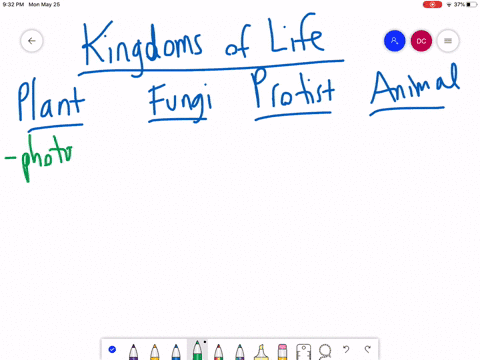 9:32 PM Mon May 25
37%
DC
Kingdoms of Life
Plant Fungi Protist Animal
-photo